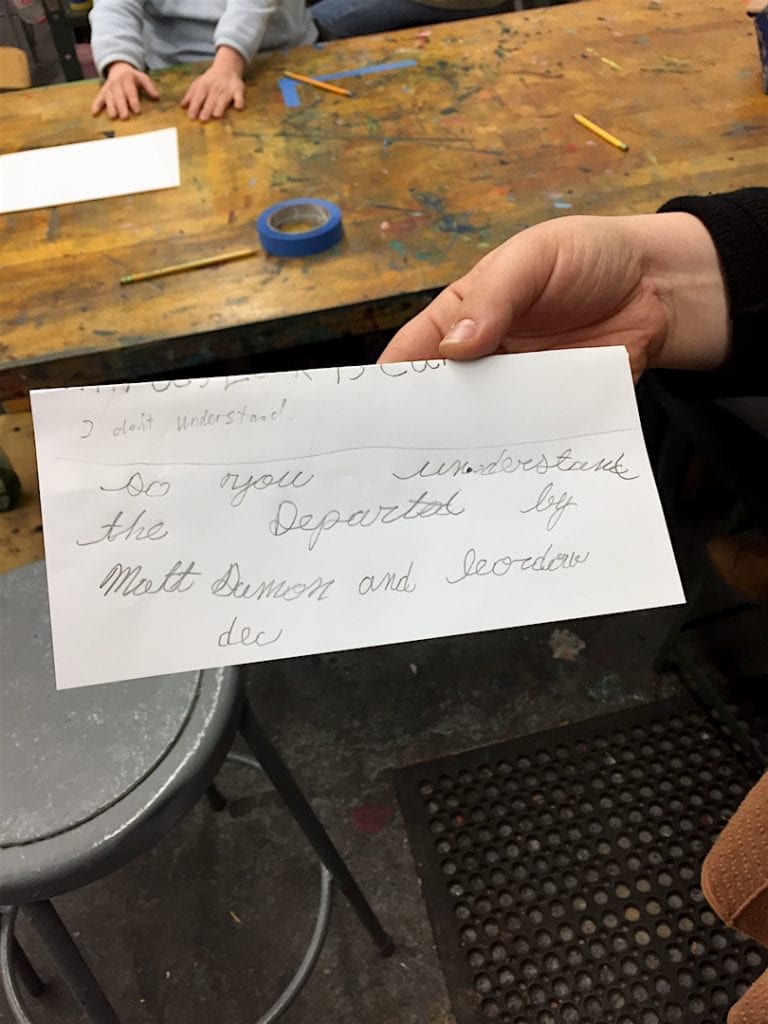 I don't understand.
so you understand
the Departed by
Matt Damon and leordow
dec